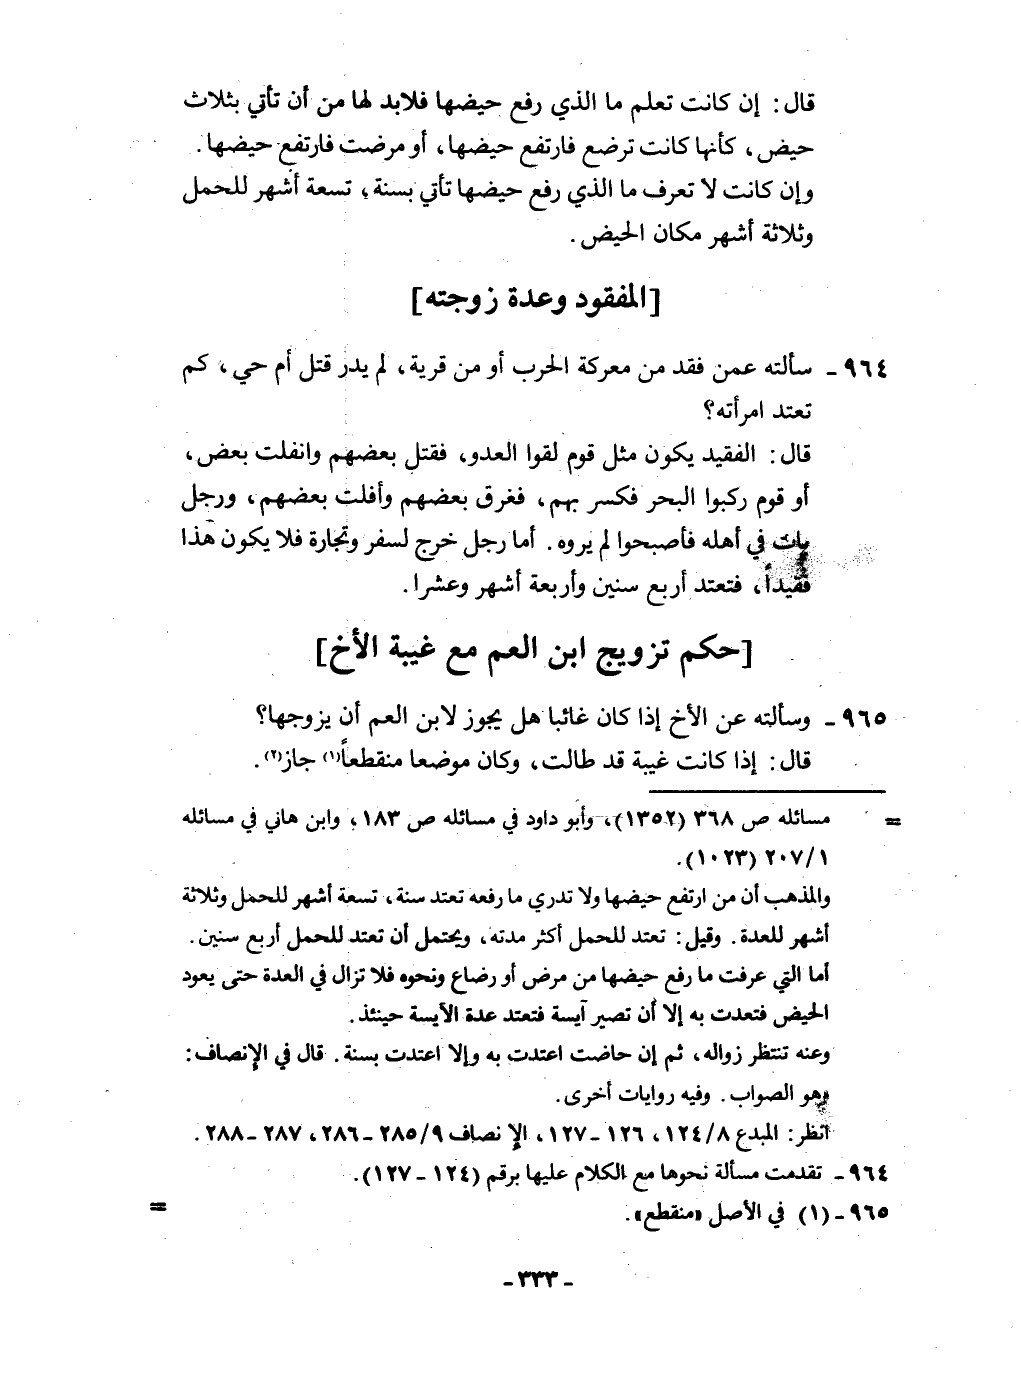 قال: إن كانت تعلم ما الذي رفع حيضها فلابد لها من أن تأتي بثلاث
حيض، كأنها كانت ترضع فارتفع حيضها، أو مرضت فارتفع حيضها.
وإن كانت لا تعرف ما الذي رفع حيضها تأتي بسنة، تسعة أشهر للحمل
وثلاثة أشهر مكان الحيض.
[المفقود وعدة زوجته]
٩٦٤ - سألته عمن فقد من معركة الحرب أو من قرية، لم يدر قتل أم حي، كم
تعتد امرأته؟
قال: الفقيد يكون مثل قوم لقوا العدو، فقتل بعضهم وانفلت بعض،
أو قوم ركبوا البحر فكسر بهم، فغرق بعضهم وأفلت بعضهم، ورجل
بات في أهله فأصبحوا لم يروه. أما رجل خرج لسفر وتجارة فلا يكون هذا
فقيداً، فتعتد أربع سنين وأربعة أشهر وعشرا.
[حكم تزويج ابن العم مع غيبة الأخ]
٩٦٥ - وسألته عن الأخ إذا كان غائبا هل يجوز لابن العم أن يزوجها؟
قال: إذا كانت غيبة قد طالت، وكان موضعا منقطعاً(١) جاز(٢).
= مسائله ص ٣٦٨ (١٣٥٢)، وأبو داود في مسائله ص ١٨٣، وابن هاني في مسائله
٢٠٧/١ (١٠٢٣).
والمذهب أن من ارتفع حيضها ولا تدري ما رفعه تعتد سنة، تسعة أشهر للحمل وثلاثة
أشهر للعدة. وقيل: تعتد للحمل أكثر مدته، ويحتمل أن تعتد للحمل أربع سنين.
أما التي عرفت ما رفع حيضها من مرض أو رضاع ونحوه فلا تزال في العدة حتى يعود
الحيض فتعدت به إلا أن تصير آيسة فتعتد عدة الآيسة حينئذ.
وعنه تنتظر زواله، ثم إن حاضت اعتدت به وإلا اعتدت بسنة. قال في الإنصاف:
وهو الصواب. وفيه روايات أخرى.
انظر: المبدع ١٢٤/٨، ١٢٦ - ١٢٧، الإنصاف ٢٨٥/٩ - ٢٨٦، ٢٨٧ - ٢٨٨.
٩٦٤ - تقدمت مسألة نحوها مع الكلام عليها برقم (١٢٤ - ١٢٧).
٩٦٥ - (١) في الأصل «منقطع». =
- ٣٣٣ -